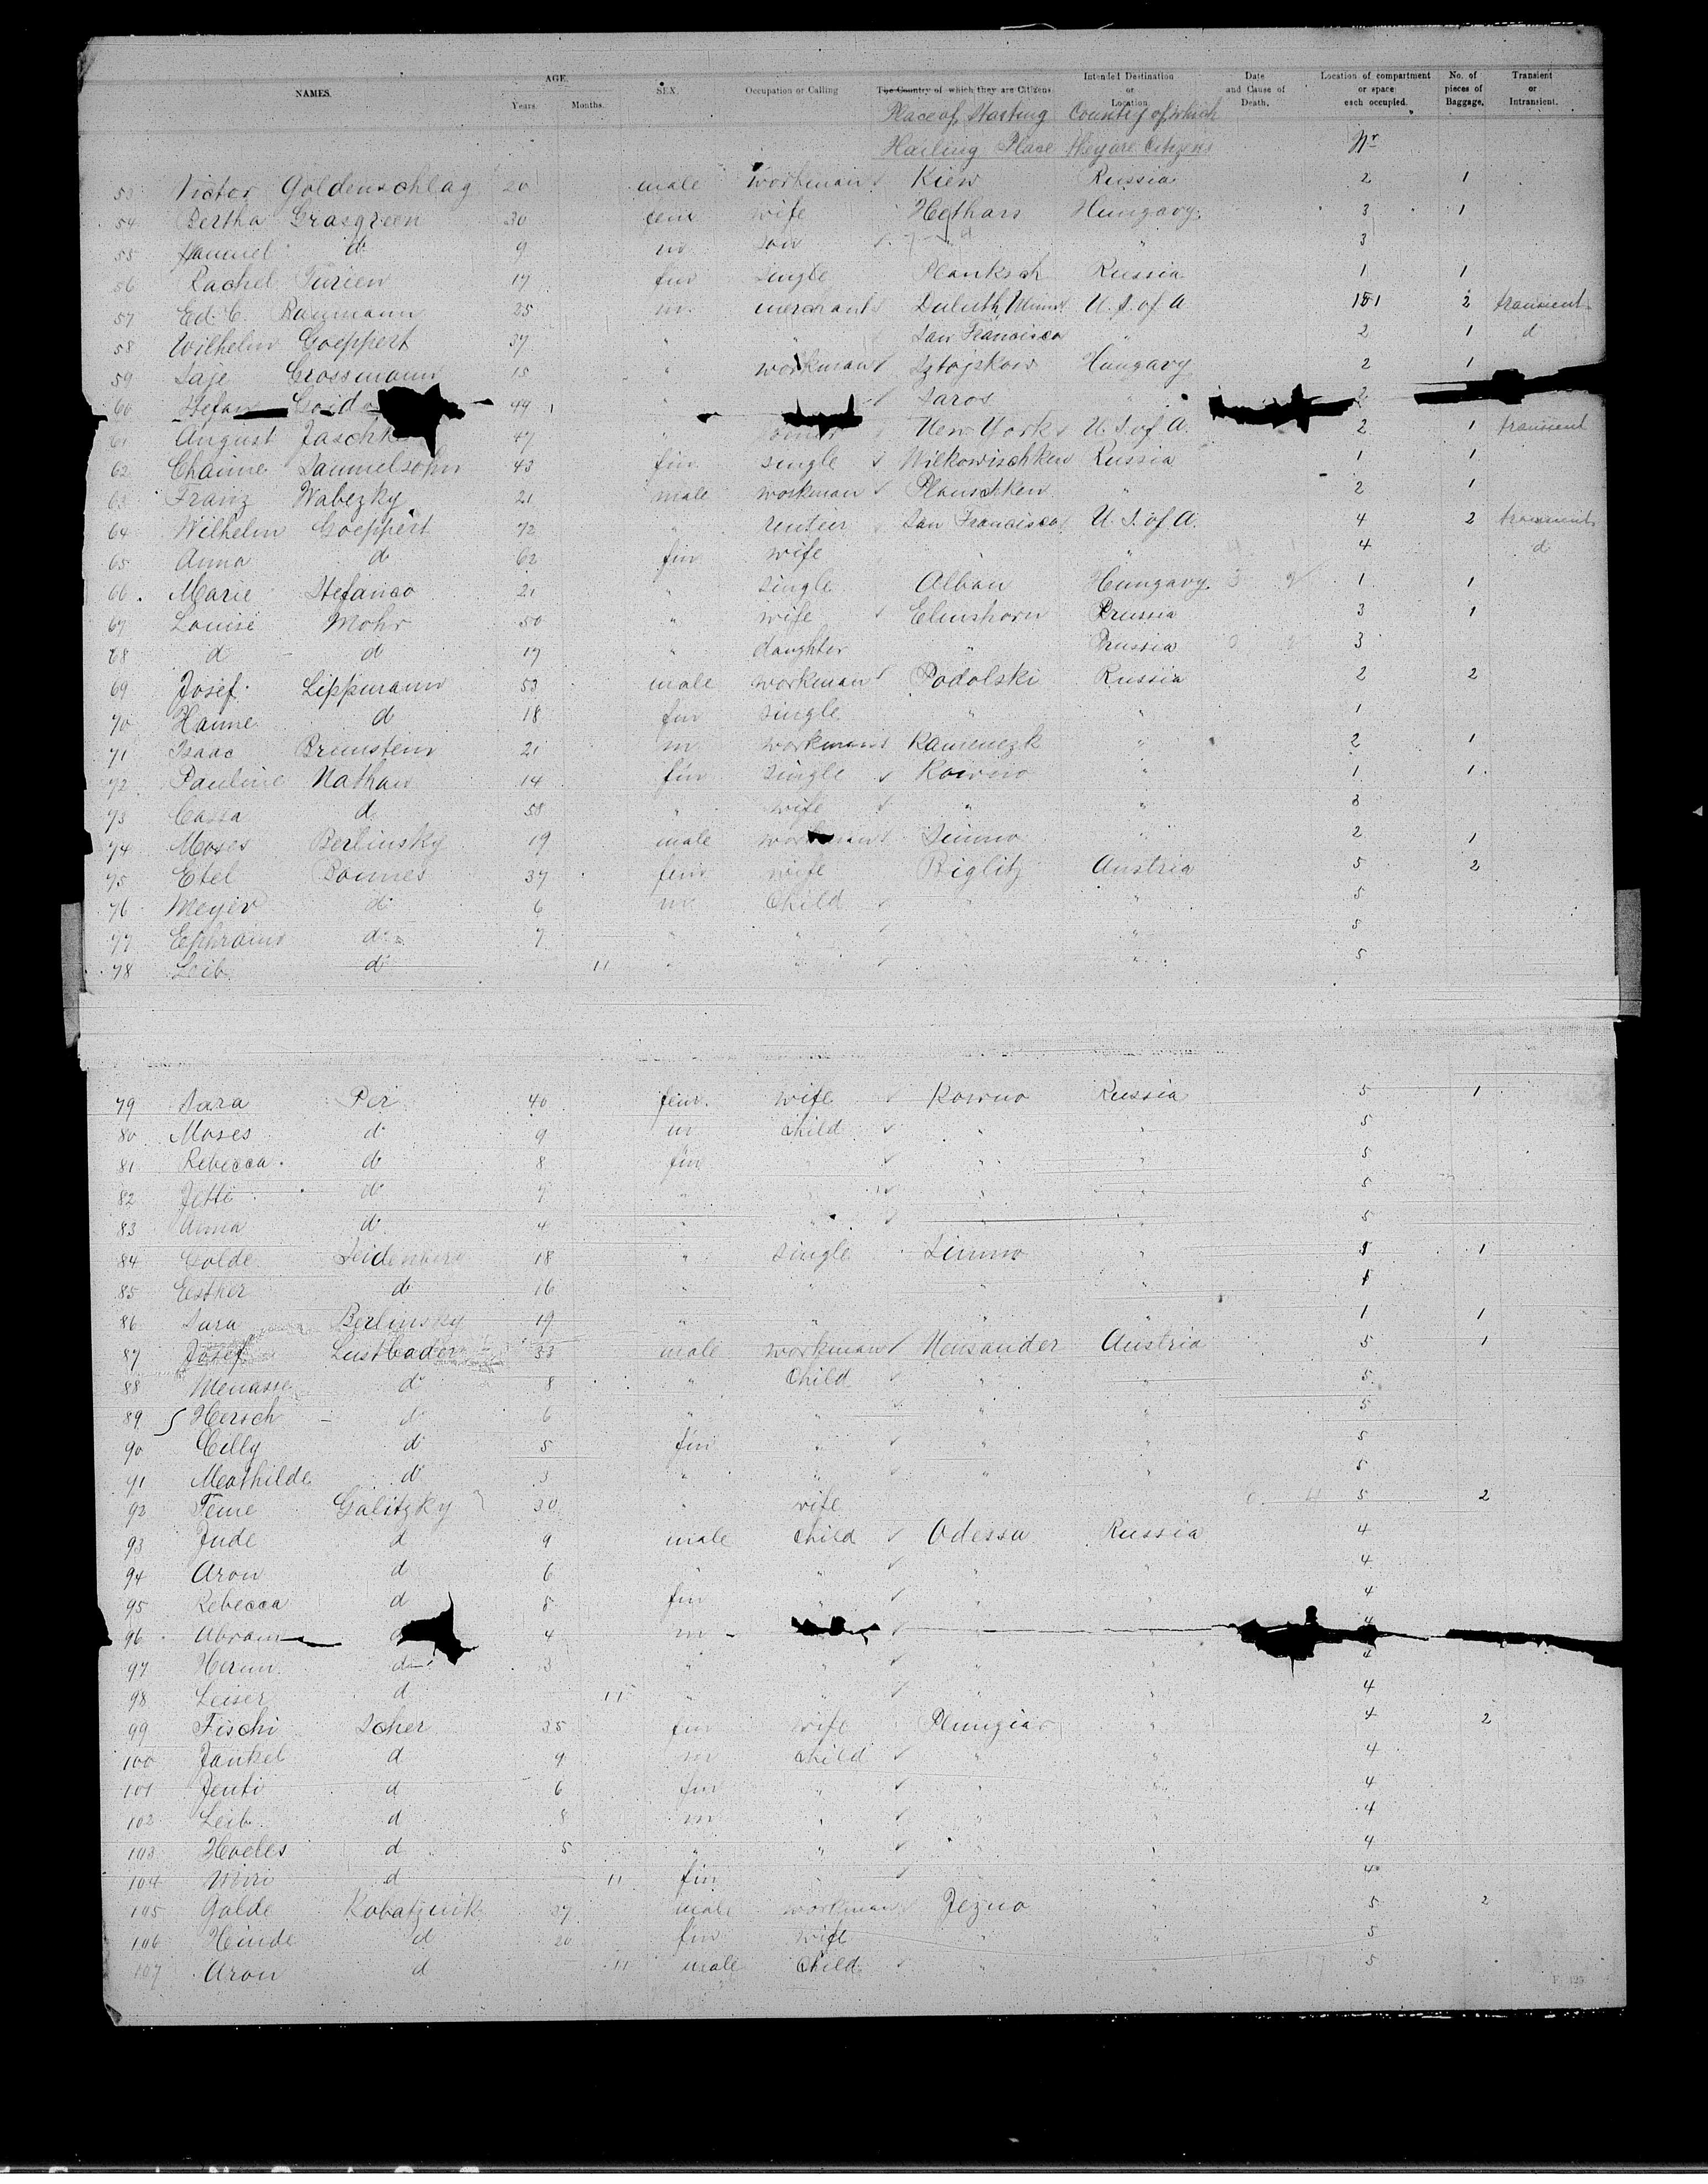 NAMES. AGE. Years. Months. SEX. Occupation or Calling The Country of which they are Citizens Intended Destination or Location Date and Cause of Death. Location of compartment or space each occupied. No. of pieces of Baggage. Transient or Intransient.
Place of Starting Country of which
Hailing Place they are Citizens Nr
53 Victor Goldenschlag 20 male workman Kiew Russia 2 1
54 Bertha Grasgreen 30 fem wife Hungary 3 1
55 Samuel d 9 m son " 3
56 Rachel Turien 17 fem single Planksch Russia 1 1
57 Ed. C. Raymann 25 m. merchant Duluth, Minn. U. S. of A 151 2 transient
58 Wilhelm Goeppert 37 " " San Francisco " 2 1 d
59 Saje Grossmann 15 " workman Sztojskow Hungary 2 1
60 Stefan 49 " Saros " 2
61 August 47 " New York U. S. of A. 2 1 transient
62 Chaime Samuelsohn 43 fem single Wilkowischken Russia 1 1
63 Franz Wabezky 21 male workman Plauschken " 2 1
64 Wilhelm Goeppert 72 " rentier San Francisco U. S. of A. 4 2 transient
65 Anna d 62 fem wife " " 4 d
66. Marie Stefanco 21 " single Alban Hungary 1 1
67 Louise Mohr 50 " wife Elmshorn Prussia 3 1
68 d d 17 " daughter " Prussia 3
69 Josef Lippmann 53 male workman Podolski Russia 2 2
70 Hanne d 18 fem single " " 1
71 Isaac Brunstein 21 m workman Kamenezk " 2 1
72 Pauline Nathan 14 fem single Kowno " 1 1
73 Cassa d 58 " wife " " 3
74 Moses Berlinsky 19 male workman " 2 1
75 Etel 37 fem wife Biglitz Austria 5 2
76 Meyer d 6 m Child " " 5
77 Ephraim d 7 " " " 5
78 Leib d 11 " " " " 5
79 Sara Per 40 fem. wife Kowno Russia 5 1
80 Moses d 9 m child " " 5
81 Rebecca d 8 fem " " 5
82 Jette d 7 " " " 5
83 Anna d 4 " " " " 5
84 Golde 18 " single " 1
85 Esther d 16 " " " " 1
86 Sara Berlinsky 19 " " " " 1 1
87 Josef Lustbader 33 male workman Neusander Austria 5 1
88 Menasse d 8 " Child " " 5
89 Hersch d 6 " " " " 5
90 Cilly d 5 fem " " " 5
91 Meathilde d 3 " " " " 5
92 Teme Galitzky 30 " wife 5 2
93 Jude d 9 male child Odessa Russia 4
94 Aron d 6 " " " " 4
95 Rebecca d 8 fem " " " 4
96 Abram 4 m " 4
97 Herm. d 3 " " " " 4
98 Leiser d 11 " " " " 4
99 Fischi Scher 35 fem wife " 4 2
100 Jankel d 9 m child " " 4
101 Jenti d 6 fem " " " 4
102 Leib d 8 m " " " 4
103 d 5 " " " " 4
104 Miri d 11 fem " " " 4
105 Golde Kobatznik 27 male workman Jezno " 5 2
106 Hinde d 20 fem wife " " 5
107 Aron d 11 male Child " " 5